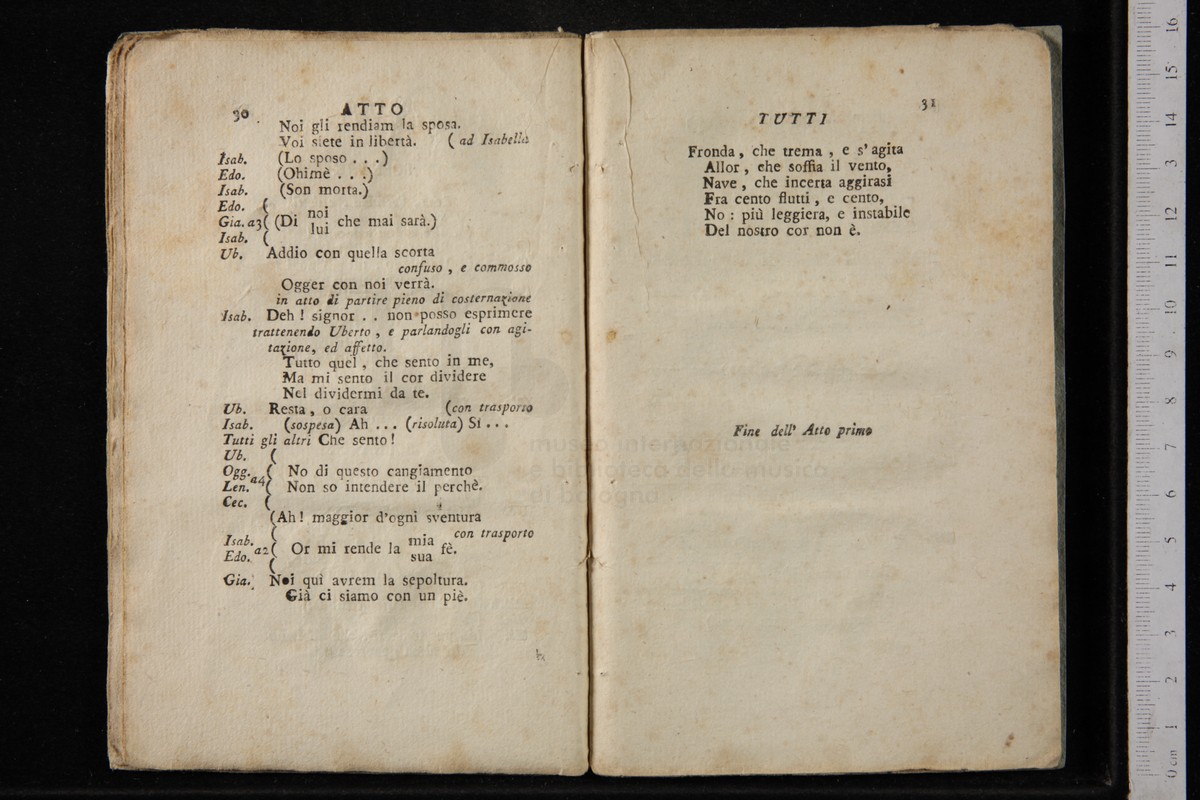 30
ATTO
Noi gli rendiam la sposa.
Voi siete in libertà. ( ad Isabella
Isab. (Lo sposo . . .)
Edo. (Ohimè . . .)
Isab. (Son morta.)
Edo. (
Gia. a3( (Di noi lui che mai sarà.)
Isab. (
Ub. Addio con quella scorta
confuso , e commosso
Ogger con noi verrà.
in atto di partire pieno di costernazione
Isab. Deh ! signor . . non posso esprimere
trattenendo Uberto , e parlandogli con agi-
tazione, ed affetto.
Tutto quel , che sento in me,
Ma mi sento il cor dividere
Nel dividermi da te.
Ub. Resta , o cara (con trasporto
Isab. (sospesa) Ah . . . (risoluta) Si . . .
Tutti gli altri Che sento !
Ub. (
Ogg. ( No di questo cangiamento
Len. a4 ( Non so intendere il perchè.
Cec. (
(Ah ! maggior d'ogni sventura
Isab. ( con trasporto
Edo. a2( Or mi rende la mia sua fè.
(
Gia. Noi quì avrem la sepoltura.
Già ci siamo con un piè.
31
TUTTI
Fronda , che trema , e s' agita
Allor , che soffia il vento,
Nave , che incerta aggirasi
Fra cento flutti , e cento,
No : più leggiera, e instabile
Del nostro cor non è.
Fine dell' Atto primo
museo internazionale
e biblioteca della musica
di bologna
0 cm 1 2 3 4 5 6 7 8 9 10 11 12 13 14 15 16